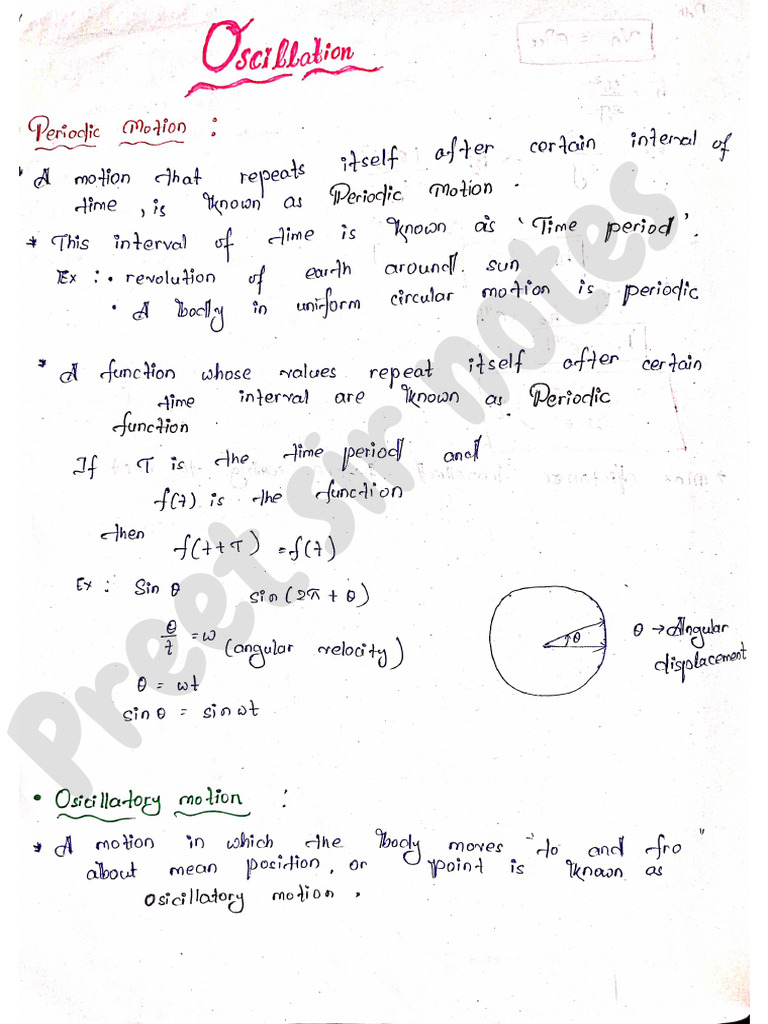 Oscillation
Periodic Motion :
* A motion that repeats itself after certain interval of
time, is known as Periodic Motion.
* This interval of time is known as 'Time period'.
Ex : • revolution of earth around sun
• A body in uniform circular motion is periodic
* A function whose values repeat itself after certain
time interval are known as Periodic
function.
If T is the time period and
f(t) is the function
then
f(t+T) = f(t)
Ex : Sin θ sin (2π + θ)
θ/t = ω (angular velocity)
θ → Angular
displacement
θ
θ = ωt
sin θ = sin ωt
• Osicillatory motion :
* A motion in which the body moves "to and fro"
about mean position, or point is known as
Osicillatory motion.
Preet sir notes